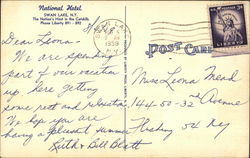 National Hotel
SWAN LAKE, N.Y.
The Nation's Host in the Catskills
Phone Liberty 891 - 892
SWAN LAKE
1959
N.Y.
POST CARD
LIBERTY
Dear Leona
We are spending
part of our vacation
up here getting
some rest and relaxation
We hope you are
having a pleasant summer
Ruth & Bill Blatt
Miss Leona Mead
144-50-32nd Avenue
Flushing 54 N.Y.